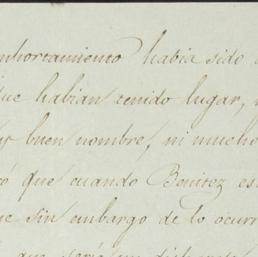 nhortamiento habia sido
ue habian tenido lugar,
buen nombre, ni mucho
ó que cuando Benitez es
e sin embargo de lo ocurr
que